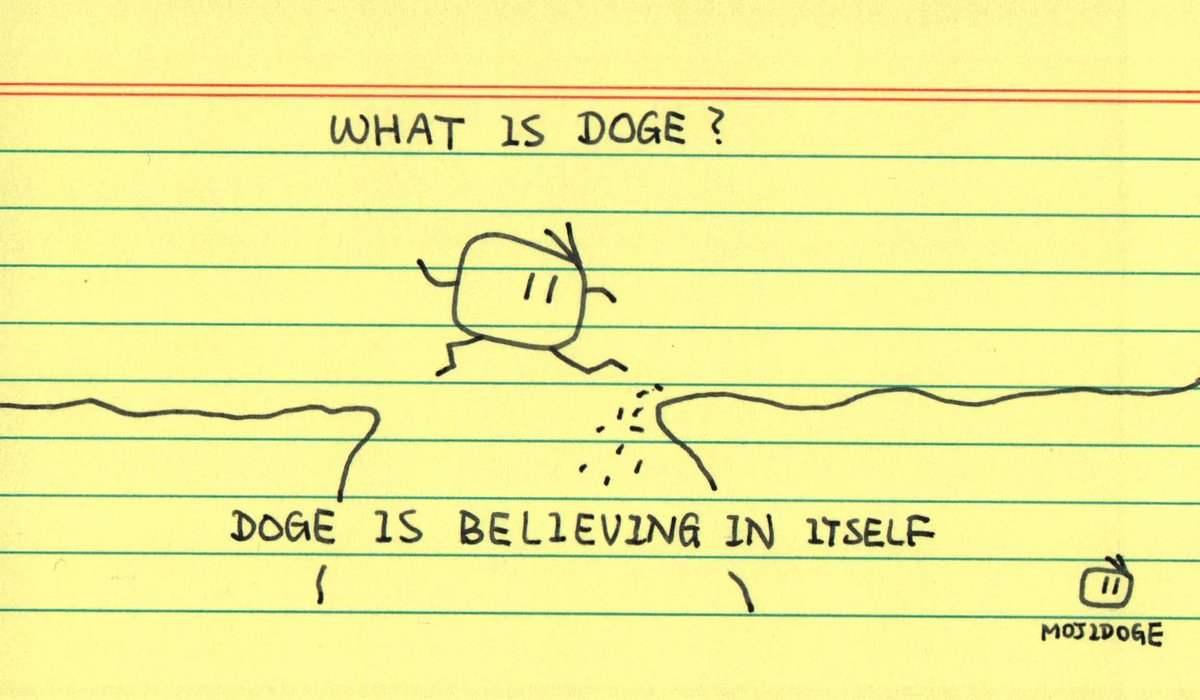 WHAT IS DOGE?
DOGE IS BELIEVING IN ITSELF
MOJIDOGE